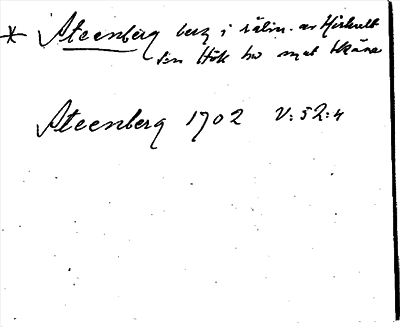 * Steenberg berg i rålin. av Hishult
sn Hök hd mot Skåne
Steenberg 1702 V:52:4